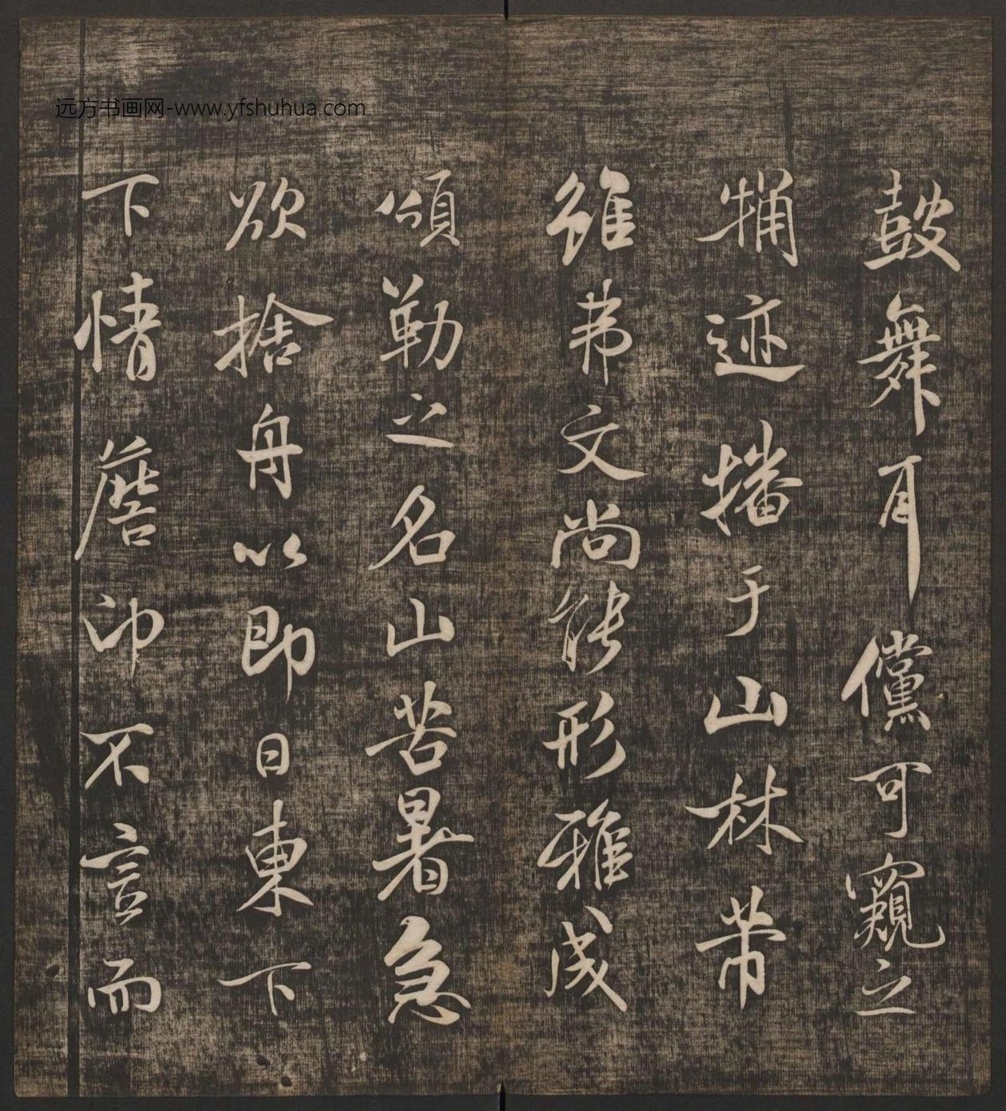 远方书画网-www.yfshuhua.com
鼓舞耳儻可窺之
播于山林芾
雖芾文尚能形雅成
頌勒之名山苦暑急
欲捨舟以即日東下
下情詹卬不言而